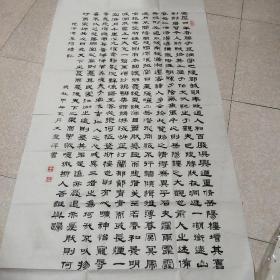 慶曆四年春滕子京謫守巴陵郡越明年政通人和百廢具興乃重修岳陽樓增其舊
制刻唐賢今人詩賦于其上屬予作文以記之予觀夫巴陵勝狀在洞庭一湖銜遠山
吞長江浩浩湯湯橫無際涯朝暉夕陰氣象萬千此則岳陽樓之大觀也前人之述備
矣然則北通巫峽南極瀟湘遷客騷人多會于此覽物之情得無異乎若夫霪雨霏霏
連月不開陰風怒號濁浪排空日星隱曜山岳潛形商旅不行檣傾楫摧薄暮冥冥虎
嘯猿啼登斯樓也則有去國懷鄉憂讒畏譏滿目蕭然感極而悲者矣至若春和景明
波瀾不驚上下天光一碧萬頃沙鷗翔集錦鱗游泳岸芷汀蘭郁郁青青而或長煙一
空皓月千里浮光躍金靜影沉璧漁歌互答此樂何極登斯樓也則有心曠神怡寵辱
偕忘把酒臨風其喜洋洋者矣嗟夫予嘗求古仁人之心或異二者之為何哉不以物
喜不以己悲居廟堂之高則憂其民處江湖之遠則憂其君是進亦憂退亦憂然則何
時而樂耶其必曰先天下之憂而憂後天下之樂而樂乎噫微斯人吾誰與歸